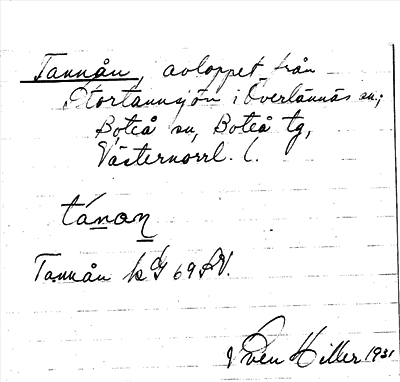 Tannån, avloppet från
Stortannsjön i Överlännäs sn;
Boteå sn, Boteå tg,
Västernorrl. l.
tánan
Tannån kG 69 SV.
Sven Hiller 1931